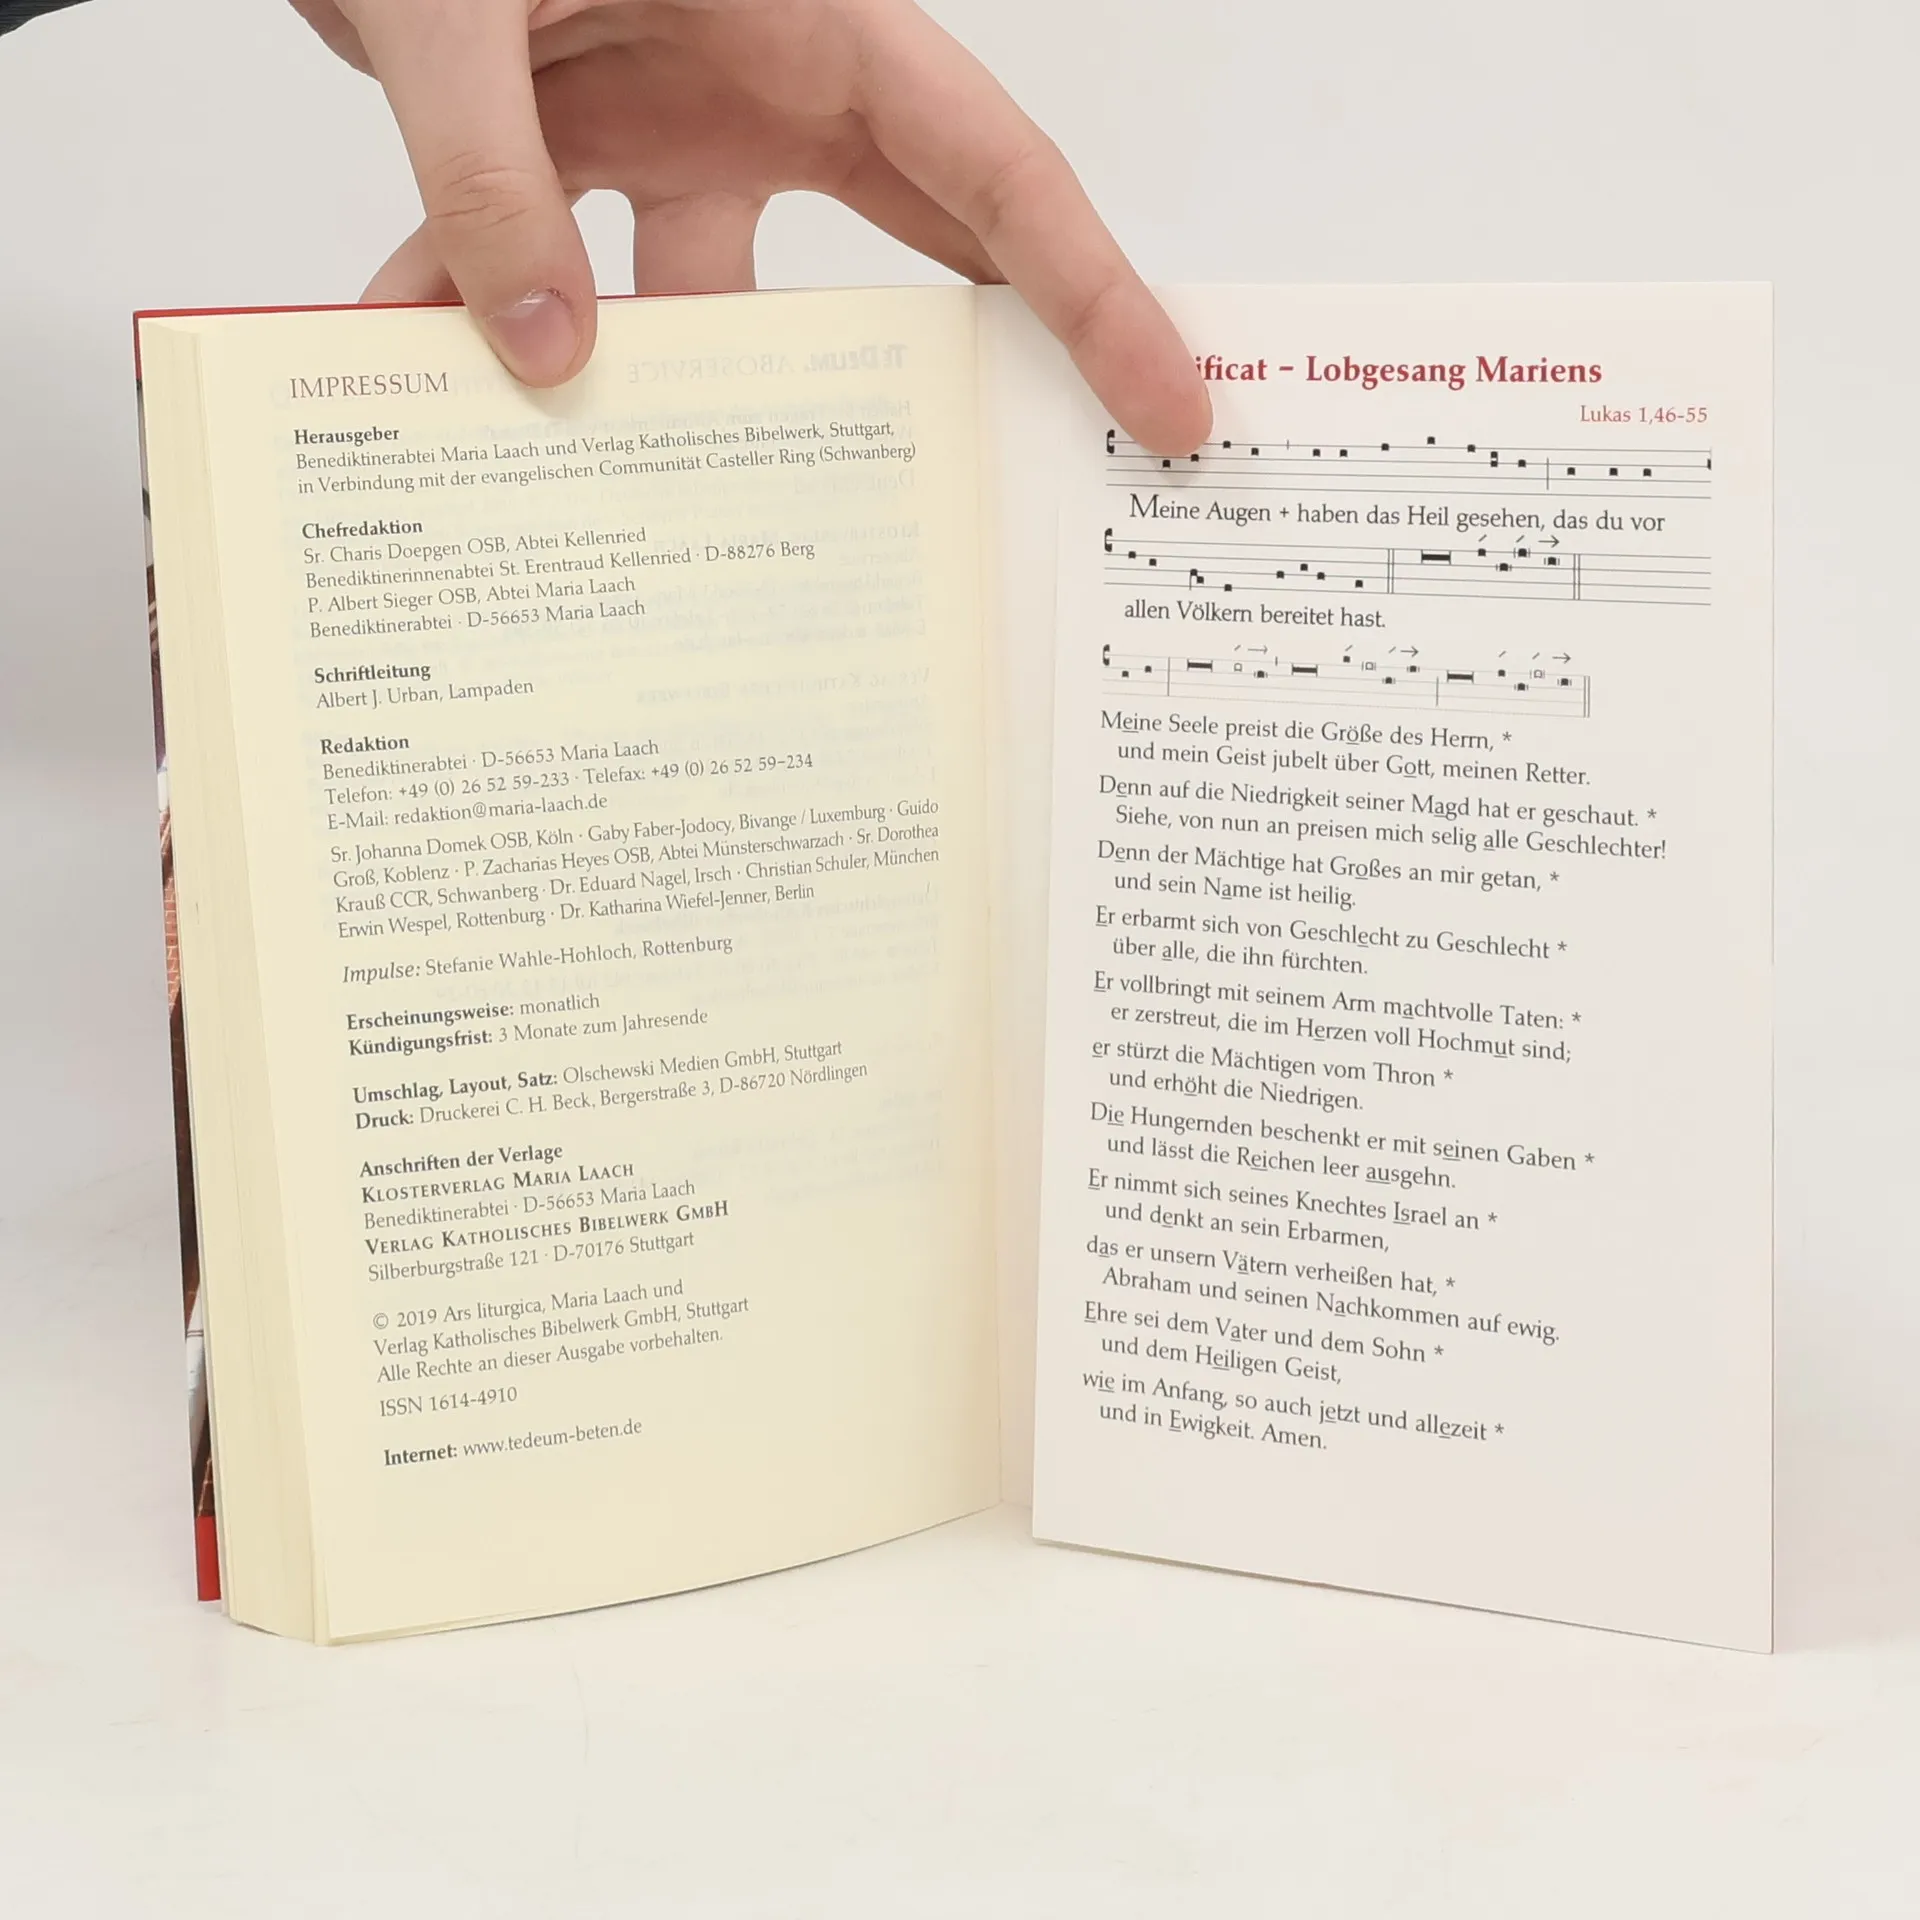 IMPRESSUM
Herausgeber
Benediktinerabtei Maria Laach und Verlag Katholisches Bibelwerk, Stuttgart,
in Verbindung mit der evangelischen Communität Casteller Ring (Schwanberg)
Chefredaktion
Sr. Charis Doepgen OSB, Abtei Kellenried
Benediktinerinnenabtei St. Erentraud Kellenried · D-88276 Berg
P. Albert Sieger OSB, Abtei Maria Laach
Benediktinerabtei · D-56653 Maria Laach
Schriftleitung
Albert J. Urban, Lampaden
Redaktion
Benediktinerabtei · D-56653 Maria Laach
Telefon: +49 (0) 26 52 59-233 · Telefax: +49 (0) 26 52 59-234
E-Mail: redaktion@maria-laach.de
Sr. Johanna Domek OSB, Köln · Gaby Faber-Jodocy, Bivange / Luxemburg · Guido
Groß, Koblenz · P. Zacharias Heyes OSB, Abtei Münsterschwarzach · Sr. Dorothea
Krauß CCR, Schwanberg · Dr. Eduard Nagel, Irsch · Christian Schuler, München
Erwin Wespel, Rottenburg · Dr. Katharina Wiefel-Jenner, Berlin
Impulse: Stefanie Wahle-Hohloch, Rottenburg
Erscheinungsweise: monatlich
Kündigungsfrist: 3 Monate zum Jahresende
Umschlag, Layout, Satz: Olschewski Medien GmbH, Stuttgart
Druck: Druckerei C. H. Beck, Bergerstraße 3, D-86720 Nördlingen
Anschriften der Verlage
KLOSTERVERLAG MARIA LAACH
Benediktinerabtei · D-56653 Maria Laach
VERLAG KATHOLISCHES BIBELWERK GMBH
Silberburgstraße 121 · D-70176 Stuttgart
© 2019 Ars liturgica, Maria Laach und
Verlag Katholisches Bibelwerk GmbH, Stuttgart
Alle Rechte an dieser Ausgabe vorbehalten.
ISSN 1614-4910
Internet: www.tedeum-beten.de
ificat – Lobgesang Mariens
Lukas 1,46-55
Meine Augen + haben das Heil gesehen, das du vor
allen Völkern bereitet hast.
Meine Seele preist die Größe des Herrn, *
und mein Geist jubelt über Gott, meinen Retter.
Denn auf die Niedrigkeit seiner Magd hat er geschaut. *
Siehe, von nun an preisen mich selig alle Geschlechter!
Denn der Mächtige hat Großes an mir getan, *
und sein Name ist heilig.
Er erbarmt sich von Geschlecht zu Geschlecht *
über alle, die ihn fürchten.
Er vollbringt mit seinem Arm machtvolle Taten: *
er zerstreut, die im Herzen voll Hochmut sind;
er stürzt die Mächtigen vom Thron *
und erhöht die Niedrigen.
Die Hungernden beschenkt er mit seinen Gaben *
und lässt die Reichen leer ausgehn.
Er nimmt sich seines Knechtes Israel an *
und denkt an sein Erbarmen,
das er unsern Vätern verheißen hat, *
Abraham und seinen Nachkommen auf ewig.
Ehre sei dem Vater und dem Sohn *
und dem Heiligen Geist,
wie im Anfang, so auch jetzt und allezeit *
und in Ewigkeit. Amen.